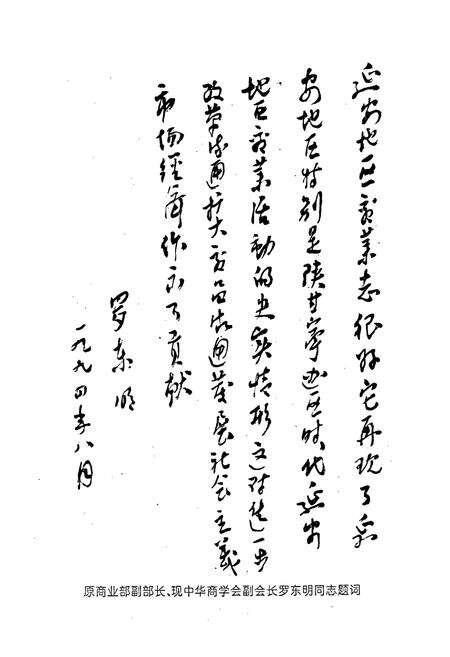 延安地区商業志很好它再现了延
安地区特别是陕甘宁边区时代延安
地区商業活动的史实情形这对进一步
改革流通扩大商品流通发展社会主义
市场经济作出了贡献
罗东明
一九九四年八月
原商业部副部长、现中华商学会副会长罗东明同志题词